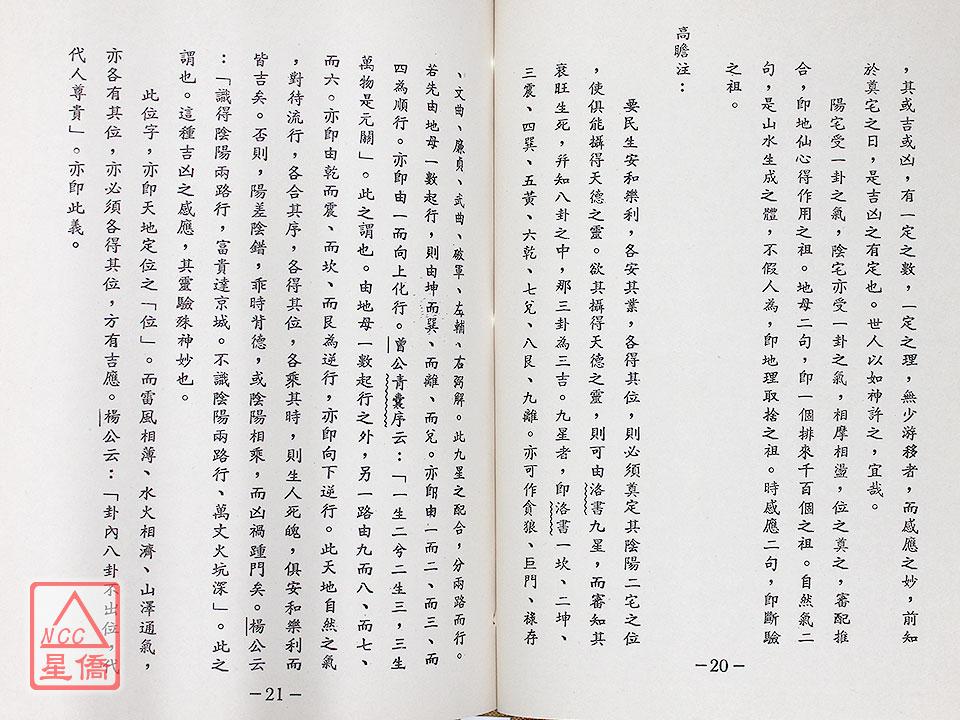 ，其或吉或凶，有一定之數，一定之理，無少游移者，而感應之妙，前知
於奠宅之日，是吉凶之有定也。世人以如神許之，宜哉。
陽宅受一卦之氣，陰宅亦受一卦之氣，相摩相盪，位之奠之，審配推
合，即地仙心得作用之祖。地母二句，即一個排來千百個之祖。自然氣二
句，是山水生成之體，不假人為，即地理取捨之祖。時感應二句，即斷驗
之祖。
高瞻注：
要民生安和樂利，各安其業，各得其位，則必須奠定其陰陽二宅之位
，使俱能攝得天德之靈。欲其攝得天德之靈，則可由洛書九星，而審知其
衰旺生死，并知八卦之中，那三卦為三吉。九星者，即洛書一坎、二坤、
三震、四巽、五黃、六乾、七兌、八艮、九離。亦可作貪狼、巨門、祿存
－20－
、文曲、廉貞、武曲、破軍、左輔、右弼解。此九星之配合，分兩路而行。
若先由地母一數起行，則由坤而巽、而離、而兌。亦即由一而二、而三、而
四為順行。亦即由一而向上化行。曾公青囊序云：「一生二兮二生三，三生
萬物是元關」。此之謂也。由地母一數起行之外，另一路由九而八、而七、
而六。亦即由乾而震、而坎、而艮為逆行，亦即向下逆行。此天地自然之氣
，對待流行，各合其序，各得其位，各乘其時，則生人死魄，俱安和樂利而
皆吉矣。否則，陽差陰錯，乖時背德，或陰陽相乘，而凶禍踵門矣。楊公云
：「識得陰陽兩路行，富貴達京城。不識陰陽兩路行、萬丈火坑深」。此之
謂也。這種吉凶之感應，其靈驗殊神妙也。
此位字，亦即天地定位之「位」。而雷風相薄、水火相濟、山澤通氣，
亦各有其位，亦必須各得其位，方有吉應。楊公云：「卦內八卦不出位，代
代人尊貴」。亦即此義。
－21－
NCC
星僑